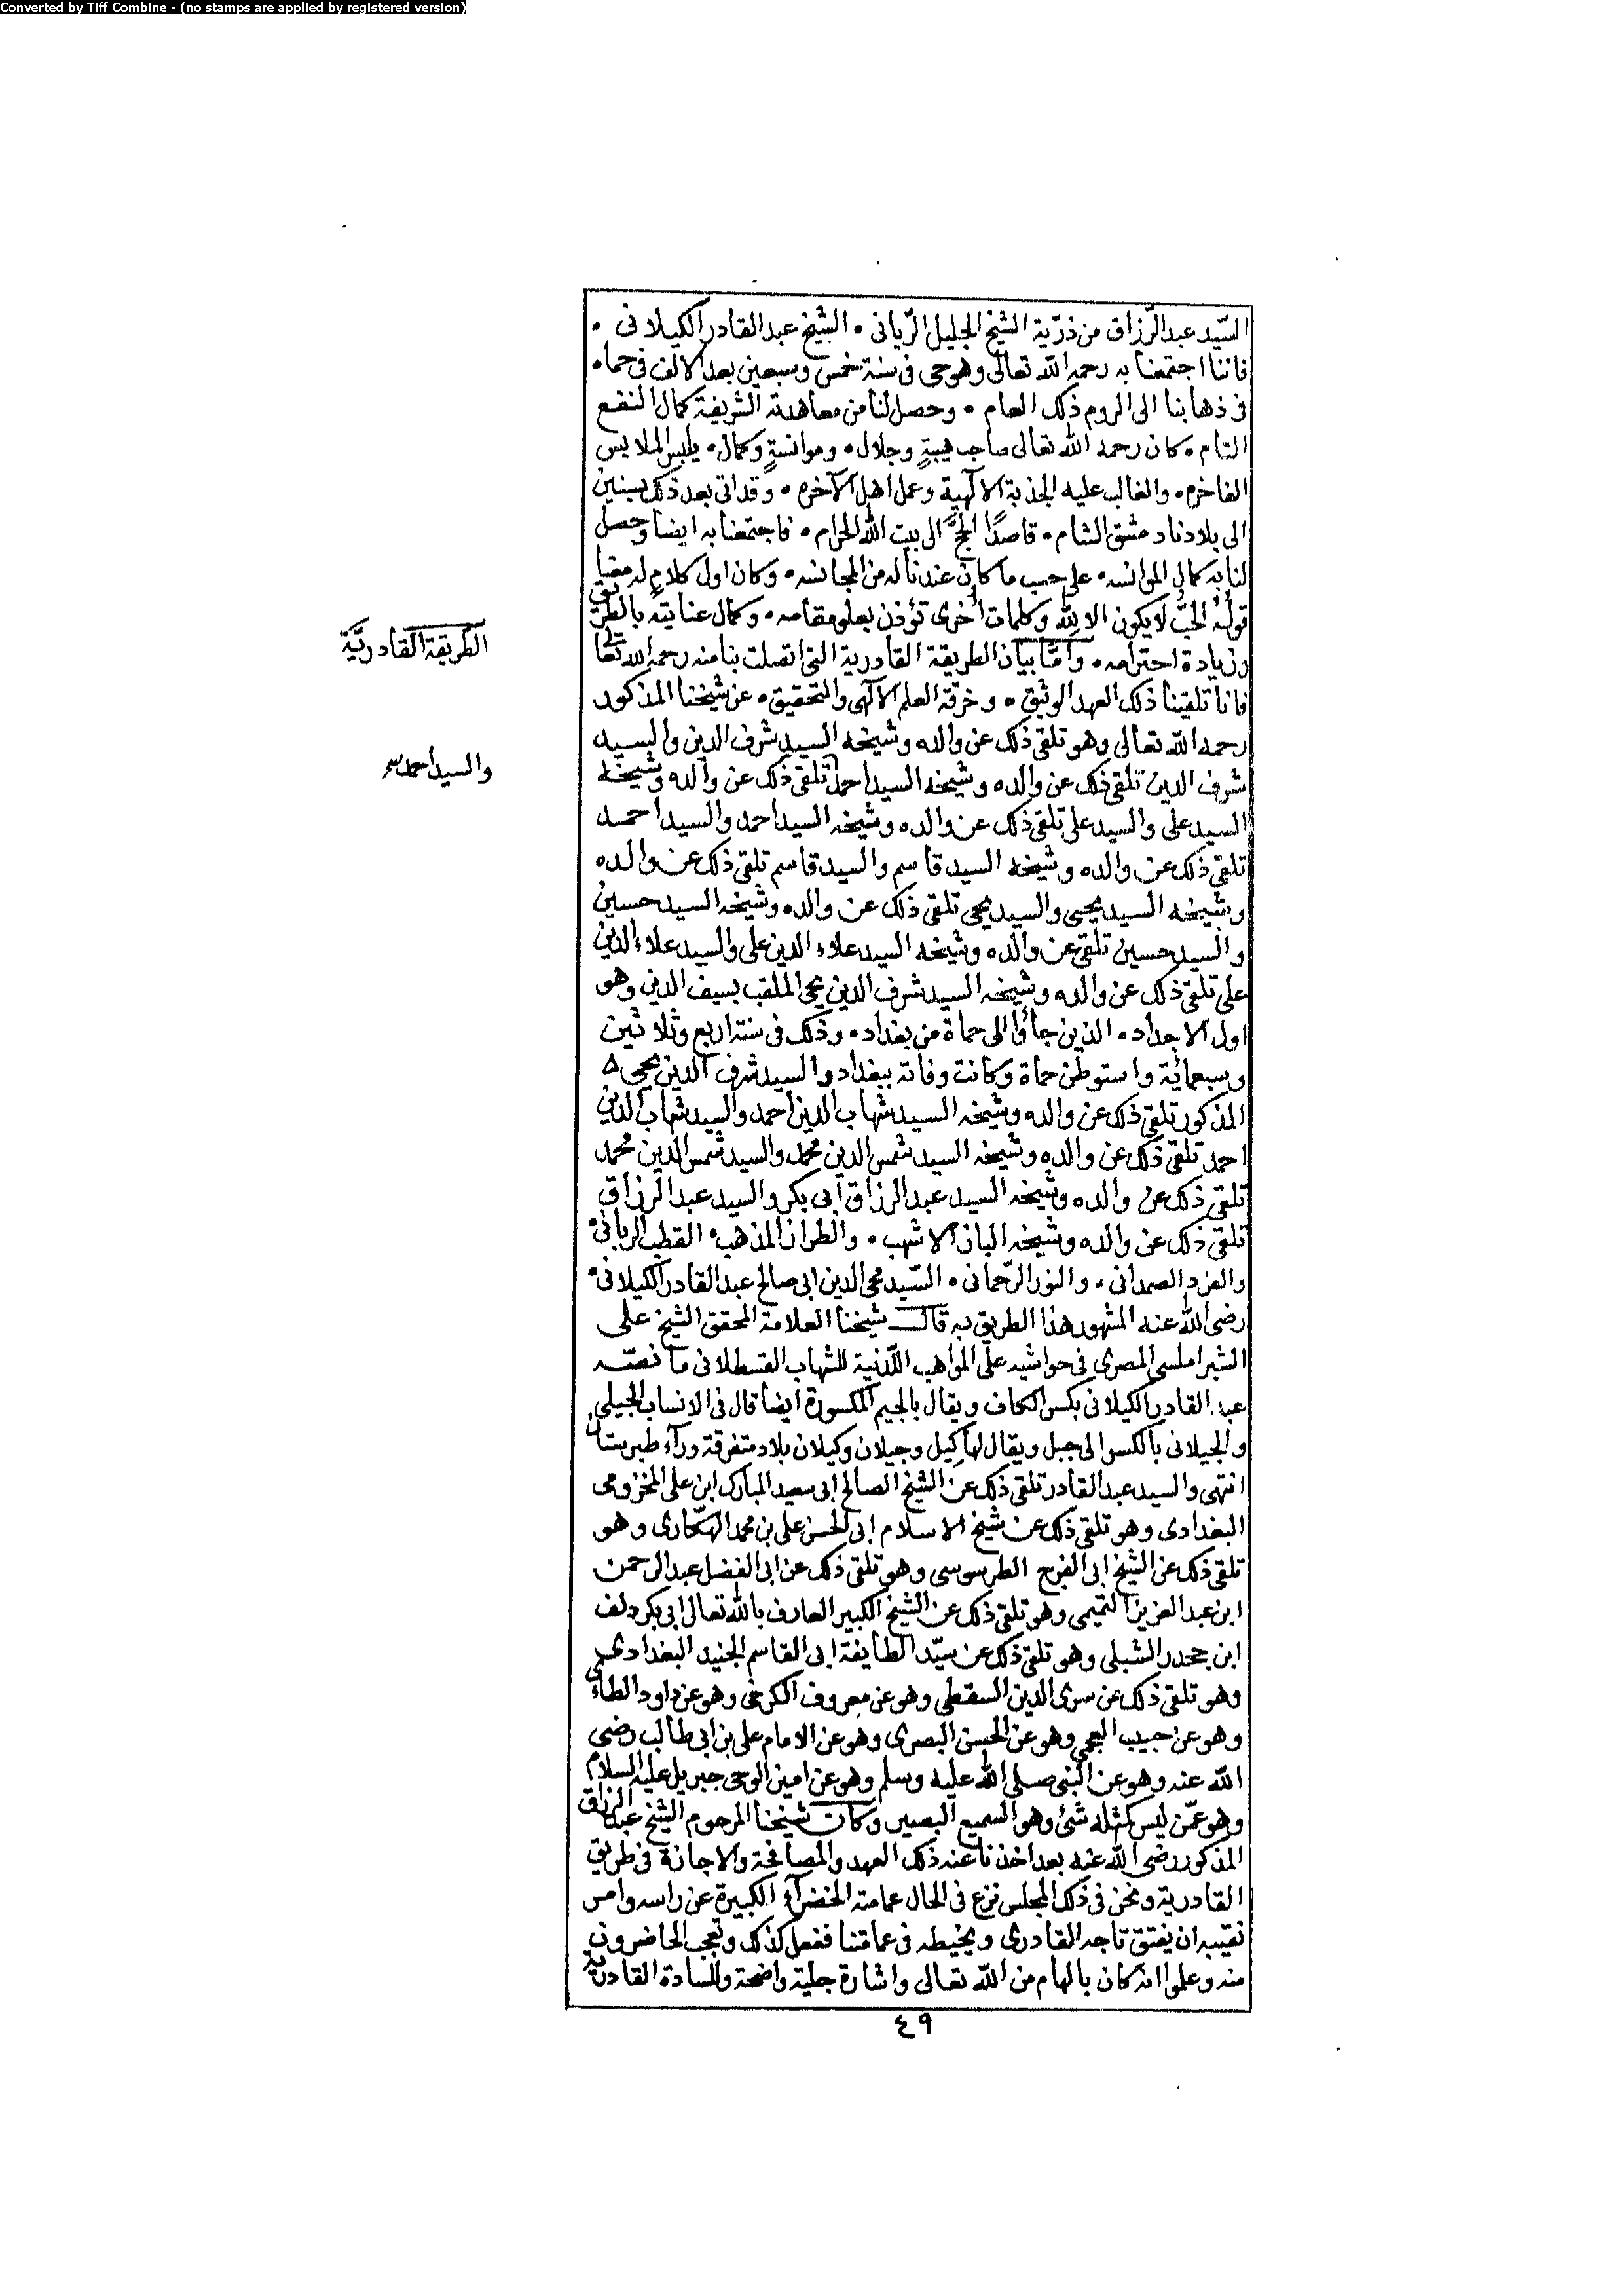 Converted by Tiff Combine - (no stamps are applied by registered version)
السيّد عبد الرّزاق من ذرّية الشيخ الجليل الرّبانى • الشيخ عبد القادر الكيلانى •
فاننا اجتمعنا به رحمه الله تعالى وهو حى فى سنة خمس وسبعين بعد الالف فى حماه
فى ذهابنا الى الروم ذلك العام • وحصل لنا من معاهدته الشريفة كمال النفع
التام • كان رحمه الله تعالى صاحب هيبةٍ وجلال • وموانسةٍ وكمال • يلبس الملابس
الفاخره • والغالب عليه الجذبة الالهية وعمل اهل الآخره • وقد اتى بعد ذلك بسنين
الى بلادنا دمشق الشام • قاصدًا الحجَّ الى بيت الله الحرام • فاجتمعنا به ايضا وحصل
لنا به كمال الموانسه • على حسب ما كان عندنا له من المجانسه • وكان اول كلامٍ له معنا
قولُهُ الحبُّ لا يكون الا لله وكلمات اُخرى تؤذن بعلو مقامه • وكمال عنايته بالطريق
وزيادة احترامه • وامّا بيان الطريقة القادرية التى اتصلت بنا منه رحمه الله تعالى
الطريقة القادريَّة
فانا تلقينا ذلك العهد الوثيق • وخرقة العلم الالهى والتحقيق • عن شيخنا المذكور
رحمه الله تعالى وهو تلقى ذلك عن والده وشيخه السيد شرف الدين والسيد
شرف الدين تلقى ذلك عن والده وشيخه السيد احمد تلقى ذلك عن والده وشيخه
والسيد احمد صح
السيد على والسيد على تلقى ذلك عن والده وشيخه السيد احمد والسيد احمد
تلقى ذلك عن والده وشيخه السيد قاسم والسيد قاسم تلقى ذلك عن والده
وشيخه السيد يحيى والسيد يحيى تلقى ذلك عن والده وشيخه السيد حسين
والسيد حسين تلقى عن والده وشيخه السيد علاء الدين على والسيد علاء الدين
على تلقى ذلك عن والده وشيخه السيد شرف الدين يحيى الملقب بسيف الدين وهو
اول الاجداد • الذين جاؤا الى حماة من بغداد • وذلك فى سنة اربع وثلاثين
وسبعمائية واستوطن حماة وكانت وفاته ببغداد والسيد شرف الدين يحيى
المذكور تلقى ذلك عن والده وشيخه السيد شهاب الدين احمد والسيد شهاب الدين
احمد تلقى ذلك عن والده وشيخه السيد شمس الدين محمد والسيد شمس الدين محمد
تلقى ذلك عن والده وشيخه السيد عبد الرزاق ابى بكر والسيد عبد الرزاق
تلقى ذلك عن والده وشيخه الباز الاشهب • والطراز المذهب • القطب الربانى •
والفرد الصمدانى • والنور الرّحمانى • السّيد محى الدين ابى صالح عبد القادر الكيلانى •
رضى الله عنه المشهور هذا الطريق به قال شيخنا العلامة المحقق الشيخ على
الشبراملسى المصرى فى حواشيه على المواهب اللّدنية للشهاب القسطلانى ما نصّه
عبد القادر الكيلانى بكسر الكاف ويقال بالجيم المكسورة ايضا قال فى الانساب الجيلى
والجيلانى بالكسر الى جيل ويقال لها كيل وجيلان وكيلان بلاد متفرقة ورآء طبرستان
انتهى والسيد عبد القادر تلقى ذلك عن الشيخ الصالح ابى سعيد المبارك ابن على المخزومى
البغدادى وهو تلقى ذلك عن شيخ الاسلام ابى الحسن على بن محمد الهكّارى وهو
تلقى ذلك عن الشيخ ابى الفرج الطرسوسى وهو تلقى ذلك عن ابى الفضل عبد الرحمن
ابن عبد العزيز التميمى وهو تلقى ذلك عن الشيخ الكبير العارف بالله تعالى ابى بكر دلف
ابن جحدر الشبلى وهو تلقى ذلك عن سيّد الطايفة ابى القاسم الجنيد البغدادى
وهو تلقى ذلك عن سرى الدين السقطى وهو عن معروف الكرخى وهو عن داود الطاءى
وهو عن حبيب العجمى وهو عن الحسن البصرى وهو عن الامام على بن ابى طالب رضى
الله عنه وهو عن النبى صلى الله عليه وسلم وهو عن امين الوحى جبريل عليه السلام
وهو عمّن ليس كمثله شئ وهو السميع البصير وكان شيخنا المرحوم الشيخ عبد الرزاق
المذكور رضى الله عنه بعد اخذنا عنه ذلك العهد والمصافحة والاجازة فى طريق
القادرية ونحن فى ذلك المجلس نزع فى الحال عمامته الخضرآء الكبيرة عن راسه وامر
نقيبه ان يفتق تاجه القادرى ويخيطه فى عمامتنا ففعل كذلك وتعجب الحاضرون
منه وعلموا انه كان بالهام من الله تعالى واشارة جلية واضحة وللسادة القادرية
٤٩